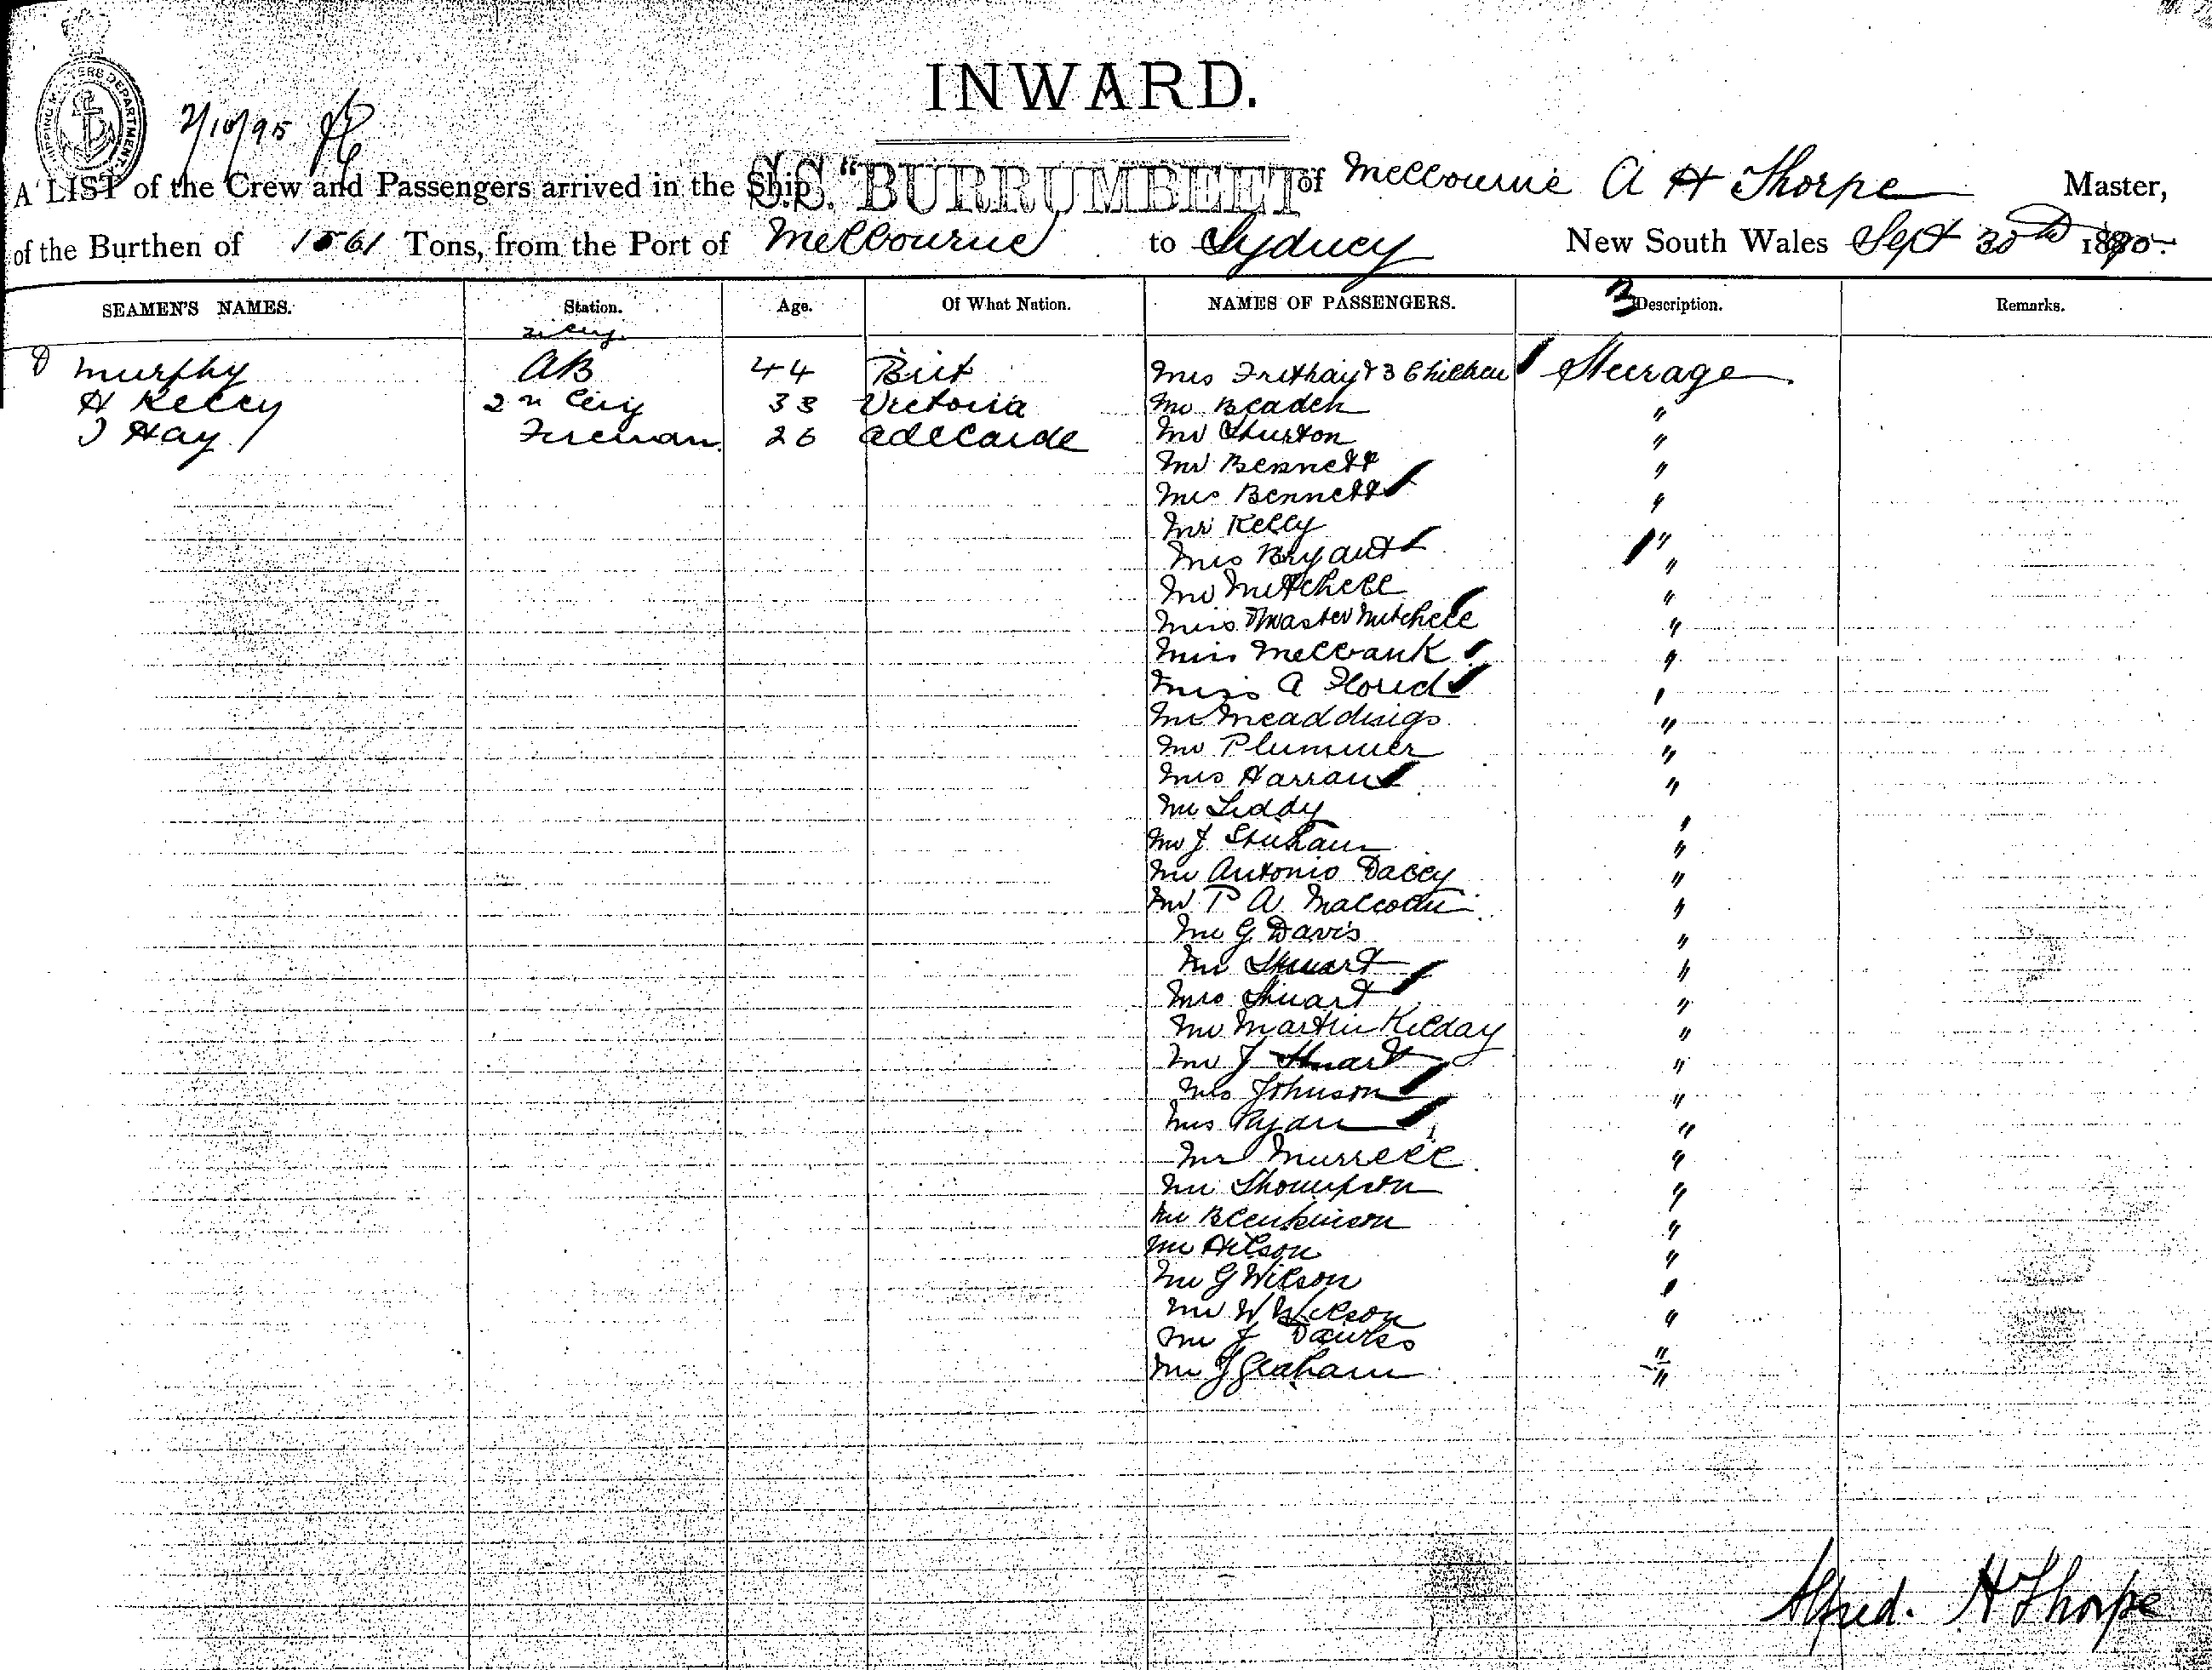 INWARD.
2/10/95
A LIST of the Crew and Passengers arrived in the Ship S.S. "BURRUMBEET of Melbourne A H Thorpe Master,
of the Burthen of Tons, from the Port of Melbourne to Sydney New South Wales Sept 30th
SEAMEN'S NAMES. Station. Age. Of What Nation. NAMES OF PASSENGERS. Description. Remarks.
Murphy AB 44 Brit Mrs & 3 Children Steerage
H Kelly 2n Eng 33 Victoria Mr "
J Hay Fireman 26 Adelaide Mr "
Mr Bennett "
Mrs Bennett "
Mr Kelly "
Mrs Bryant "
Mr Mitchell "
Miss & Master Mitchell "
Miss Mellbank "
Miss A "
Mr "
Mr Plummer "
Mrs "
Mr Liddy "
Mr J "
Mr Antonio Dacey "
Mr P A Malcolm "
Mr G Davis "
Mr Stuart "
Mrs Stuart "
Mr Martin Kilday "
Mr J Stuart "
Mrs Johnson "
Mrs Ryan "
Mr Murrell "
Mr Thompson "
Mr Blenkinson "
Mr "
Mr G Wilson "
Mr W Wilson "
Mr J "
Mr J Graham "
Alfred. H Thorpe